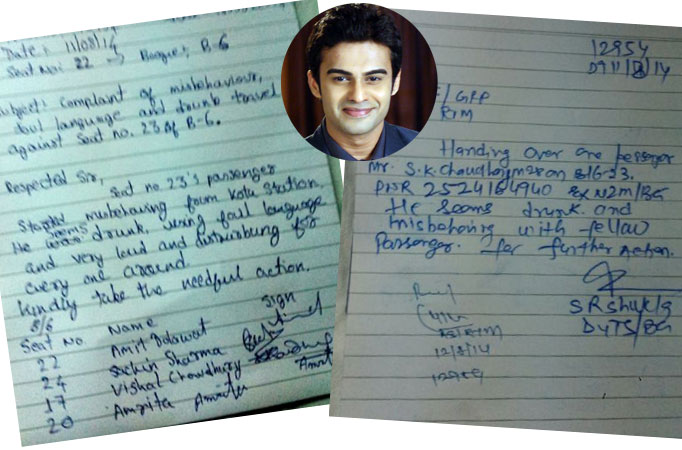 Date: 11/08/14
Seat No: 22 → Bogie: B-6
Subject: Complaint of misbehaviour,
foul language and drunk travel
against Seat no. 23 of B-6.
Respected Sir,
Seat no 23's passenger
Started misbehaving from Kota Station.
He was drunk, using foul language
and very loud and disturbing for
every one around.
Kindly take the needful action.
B/6
Seat No Name Sign
22 Amit
24 Sachin Sharma
17 Vishal Chowdhury
20 Amrita Amrita
12954
/ GRP
RTM
Handing over one passenger
Mr. S.K. Chaudhary on B/6-23.
PNR 2524164940
He seems drunk and
misbehaving with fellow
Passenger. for further Action.
SRShukla
DyTS/BG
12/8/14